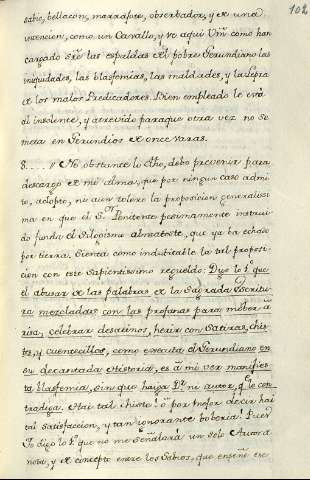 102
sabio, bellacon, marrajote, observador, y de una
intencion, como un Cavallo, y ve aqui Vm̃ como han
cargado sr̃e las espaldas del pobre Gerundiano las
iniquidades, las blasfemias, las maldades, y la Lepra
de los malos Predicadores. Bien empleado le está
al insolente, y atrevido paraque otra vez no se
meta en Gerundios de once varas.
8.... // No obstante lo dho, debo prevenir para
descargo de mi alma, que por ningun caso admi-
to, adopto, ni aun tolero la proposicion generalissi-
ma en que el Sr. Penitente pesimamente instrui-
do funda el Silogismo almatoste, que ya ha echado
por tierra. Sienta como indubitable la tal proposi-
cion con este sapientissimo regueldo: Digo lo 1º que
el abusar de las palabras de la Sagrada Escritu-
ra mezcladas con las profanas para mober a
risa, celebrar desatinos, herir con satiras, chis-
tes, y cuentecillos, como executa el Gerundiano en
su decantada Historia, es á mi ver manifies-
ta blasfemia, sin que haiga Dr. ni autor, qe. le con-
tradiga. Hai tal chiste! ó por mejor decir hai
tal satisfaccion, y tan ignorante boberia! Pues
Yo digo lo 1º que no me señalará un solo Autor de
nota, y de concepto entre los Sabios, que enseñe ese